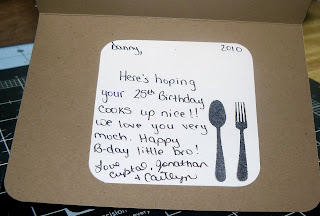 Danny, 2010
Here's hoping
your 25th Birthday
cooks up nice!!
we love you very
much. Happy
B-day little bro!
Love
Crystal, Jonathan
+ Caitlyn